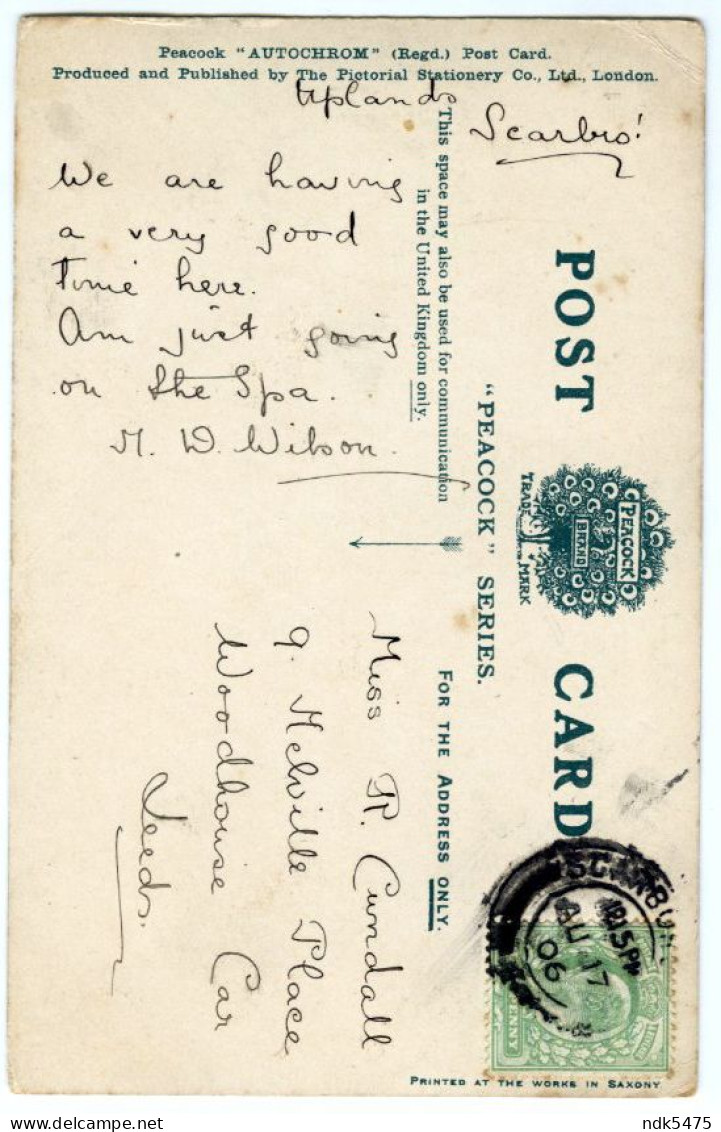 Peacock "AUTOCHROM" (Regd.) Post Card.
Produced and Published by The Pictorial Stationery Co., Ltd., London.
Uplands
Scarbro'
We are having
a very good
time here.
Am just going
on the Spa.
M. D. Wilson.
This space may also be used for communication
in the United Kingdom only.
POST CARD
PEACOCK
BRAND
TRADE MARK
"PEACOCK" SERIES.
FOR THE ADDRESS ONLY.
Miss R. Cundall
9. Melville Place
Woodhouse Car
Leeds.
AU 17
06
PRINTED AT THE WORKS IN SAXONY
ndk5475